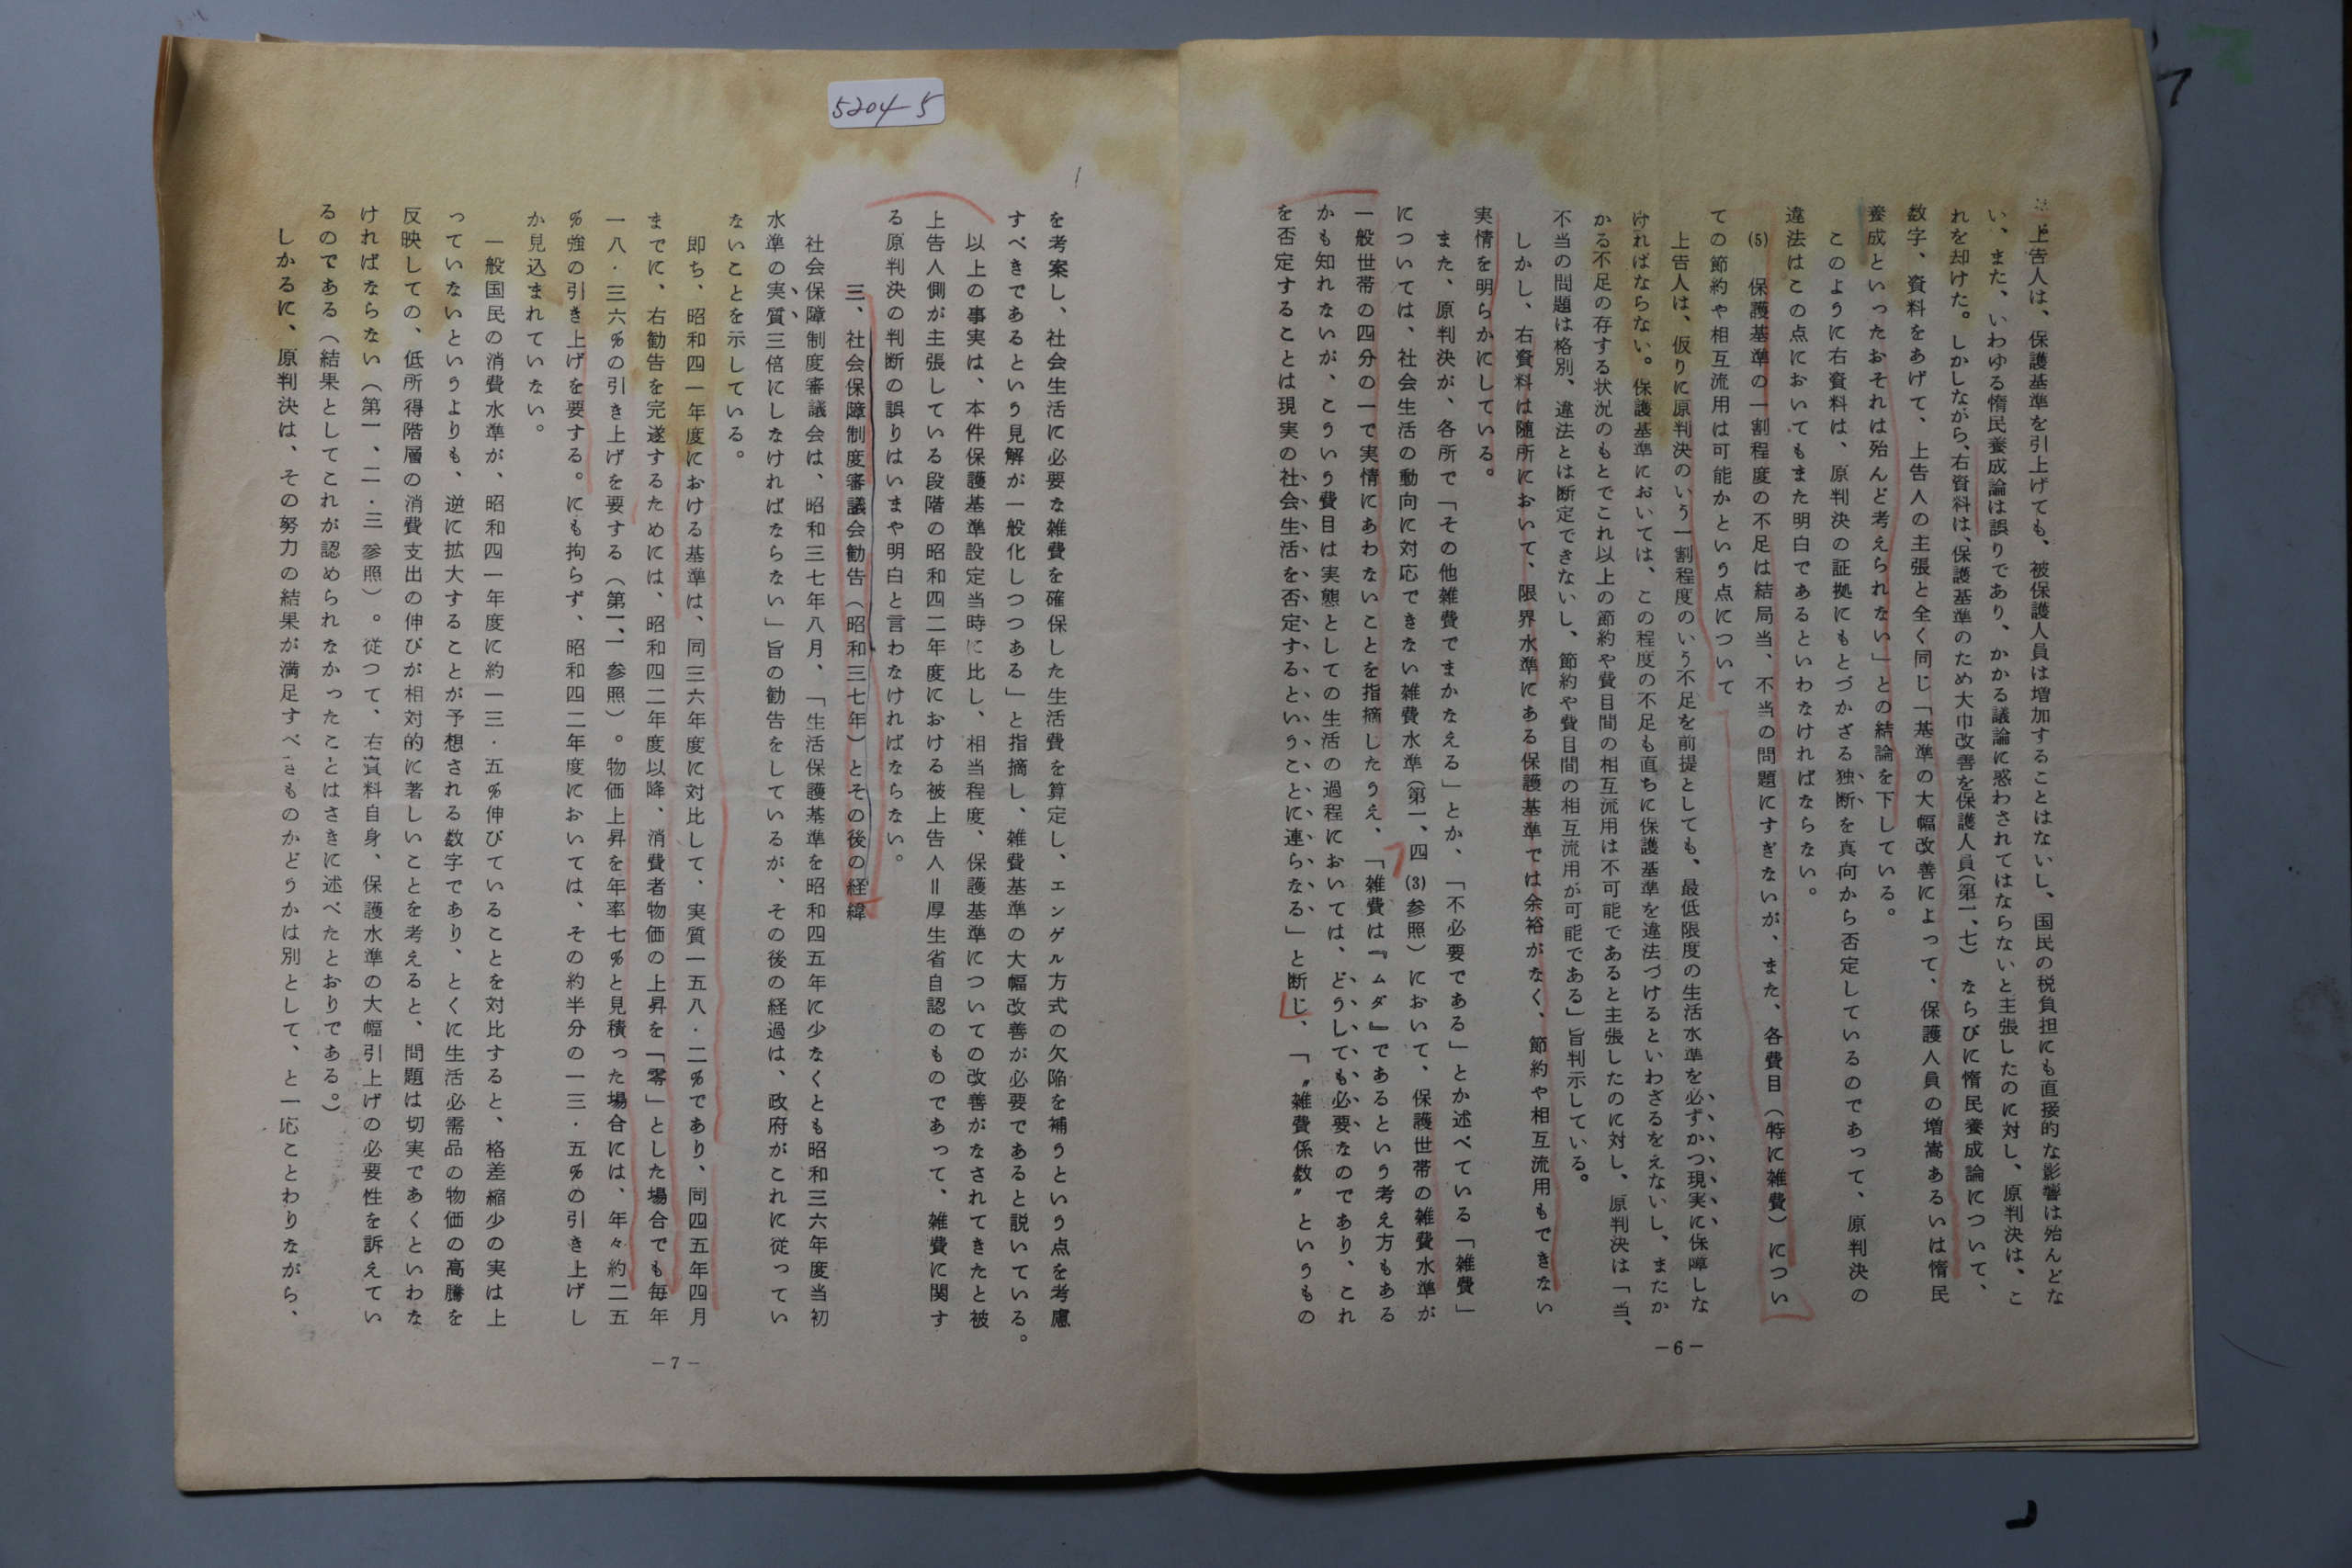 5204-5
上告人は、保護基準を引上げても、被保護人員は増加することはないし、国民の税負担にも直接的な影響は殆んどな
い、また、いわゆる惰民養成論は誤りであり、かかる議論に惑わされてはならないと主張したのに対し、原判決は、こ
れを却けた。しかしながら、右資料は、保護基準のため大巾改善を保護人員(第一、七) ならびに惰民養成論について、
数字、資料をあげて、上告人の主張と全く同じ「基準の大幅改善によって、保護人員の増嵩あるいは惰民
養成といったおそれは殆んど考えられない」との結論を下している。
このように右資料は、原判決の証拠にもとづかざる独断を真向から否定しているのであって、原判決の
違法はこの点においてもまた明白であるといわなければならない。
(5) 保護基準の一割程度の不足は結局当、不当の問題にすぎないが、また、各費目(特に雑費)につい
ての節約や相互流用は可能かという点について
上告人は、仮りに原判決のいう一割程度のいう不足を前提としても、最低限度の生活水準を必ずかつ現実に保障しな
ければならない。保護基準においては、この程度の不足も直ちに保護基準を違法づけるといわざるをえないし、またか
かる不足の存する状況のもとでこれ以上の節約や費目間の相互流用は不可能であると主張したのに対し、原判決は「当、
不当の問題は格別、違法とは断定できないし、節約や費目間の相互流用が可能である」旨判示している。
しかし、右資料は随所において、限界水準にある保護基準では余裕がなく、節約や相互流用もできない
実情を明らかにしている。
また、原判決が、各所で「その他雑費でまかなえる」とか、「不必要である」とか述べている「雑費」
については、社会生活の動向に対応できない雑費水準(第一、四(3)参照)において、保護世帯の雑費水準が
一般世帯の四分の一で実情にあわないことを指摘したうえ、「雑費は『ムダ』であるという考え方もある
かも知れないが、こういう費目は実態としての生活の過程においては、どうしても必要なのであり、これ
を否定することは現実の社会生活を否定するということに連らなる」と断じ、「〝雑費係数〟というもの
を考案し、社会生活に必要な雑費を確保した生活費を算定し、エンゲル方式の欠陥を補うという点を考慮
すべきであるという見解が一般化しつつある」と指摘し、雑費基準の大幅改善が必要であると説いている。
以上の事実は、本件保護基準設定当時に比し、相当程度、保護基準についての改善がなされてきたと被
上告人側が主張している段階の昭和四二年度における被上告人=厚生省自認のものであって、雑費に関す
る原判決の判断の誤りはいまや明白と言わなければならない。
三、社会保障制度審議会勧告(昭和三七年)とその後の経緯
社会保障制度審議会は、昭和三七年八月、「生活保護基準を昭和四五年に少なくとも昭和三六年度当初
水準の実質三倍にしなければならない」旨の勧告をしているが、その後の経過は、政府がこれに従ってい
ないことを示している。
即ち、昭和四一年度における基準は、同三六年度に対比して、実質一五八・二%であり、同四五年四月
までに、右勧告を完遂するためには、昭和四二年度以降、消費者物価の上昇を「零」とした場合でも毎年
一八・三六%の引き上げを要する(第一、一参照)。物価上昇を年率七%と見積った場合には、年々約二五
%強の引き上げを要する。にも拘らず、昭和四二年度においては、その約半分の一三・五%の引き上げし
か見込まれていない。
一般国民の消費水準が、昭和四一年度に約一三・五%伸びていることを対比すると、格差縮少の実は上
っていないというよりも、逆に拡大することが予想される数字であり、とくに生活必需品の物価の高騰を
反映しての、低所得階層の消費支出の伸びが相対的に著しいことを考えると、問題は切実であくといわな
ければならない(第一、二・三参照)。従つて、右資料自身、保護水準の大幅引上げの必要性を訴えてい
るのである(結果としてこれが認められなかったことはさきに述べたとおりである。)
しかるに、原判決は、その努力の結果が満足すべきものかどうかは別として、と一応ことわりながら、
—6—
—7—